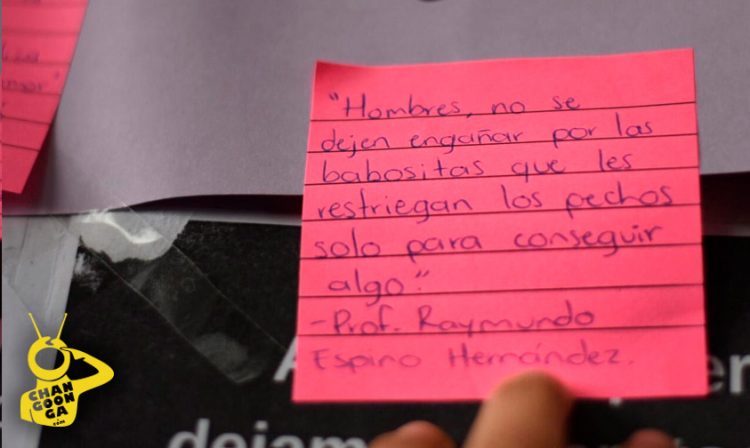 "Hombres, no se
dejen engañar por las
babositas que les
restriegan los pechos
solo para conseguir
algo"
-Prof. Raymundo
Espino Hernández.
dejam
CHAN
GOON
GA
.com